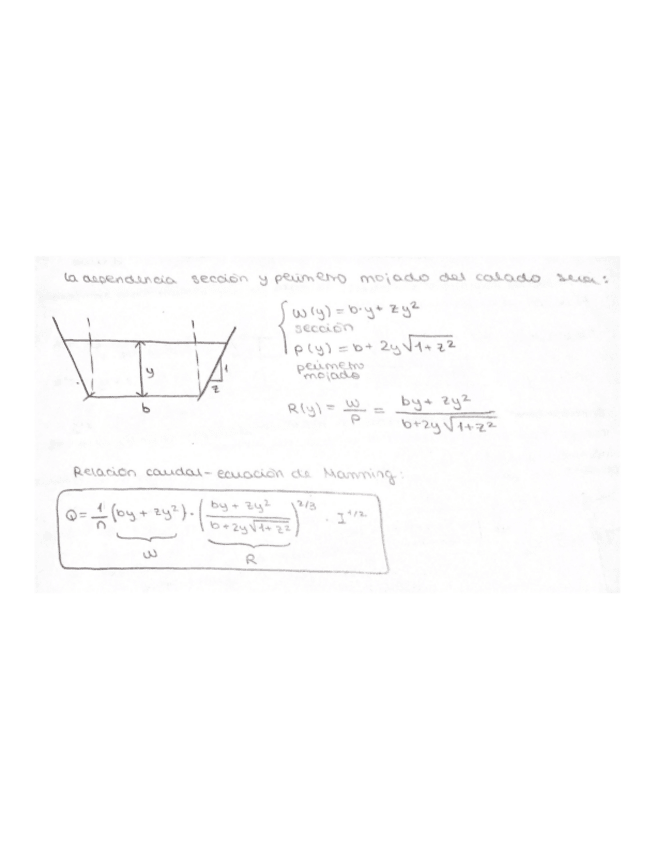 La dependencia sección y perímetro mojado del calado será:
w(y) = b·y + zy²
sección
p(y) = b + 2y√1+z²
perímetro
mojado
y
1
z
b
R(y) = w/p = by + zy² / b+2y√1+z²
Relación caudal - ecuación de Manning:
Q = 1/n (by + zy²) · (by + zy² / b+2y√1+z²)^2/3 · I^1/2
w
R